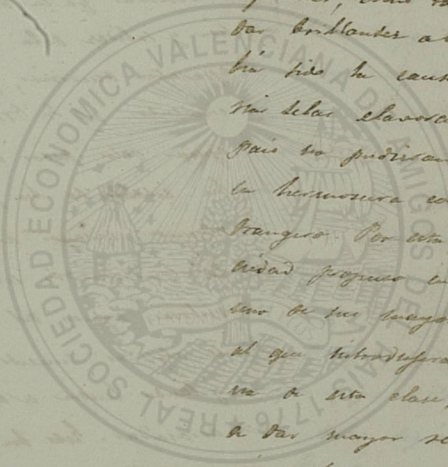 dar brillantez a
há sido la caus
rias telas elavora
Pais no pudieran
la hermosura co
trangero. Por esta
ciedad propuso
uno de sus mayo
al que introdugera
na de esta clase
a dar mayor
REAL SOCIEDAD ECONOMICA VALENCIANA DE AMIGOS DEL PAIS 1776